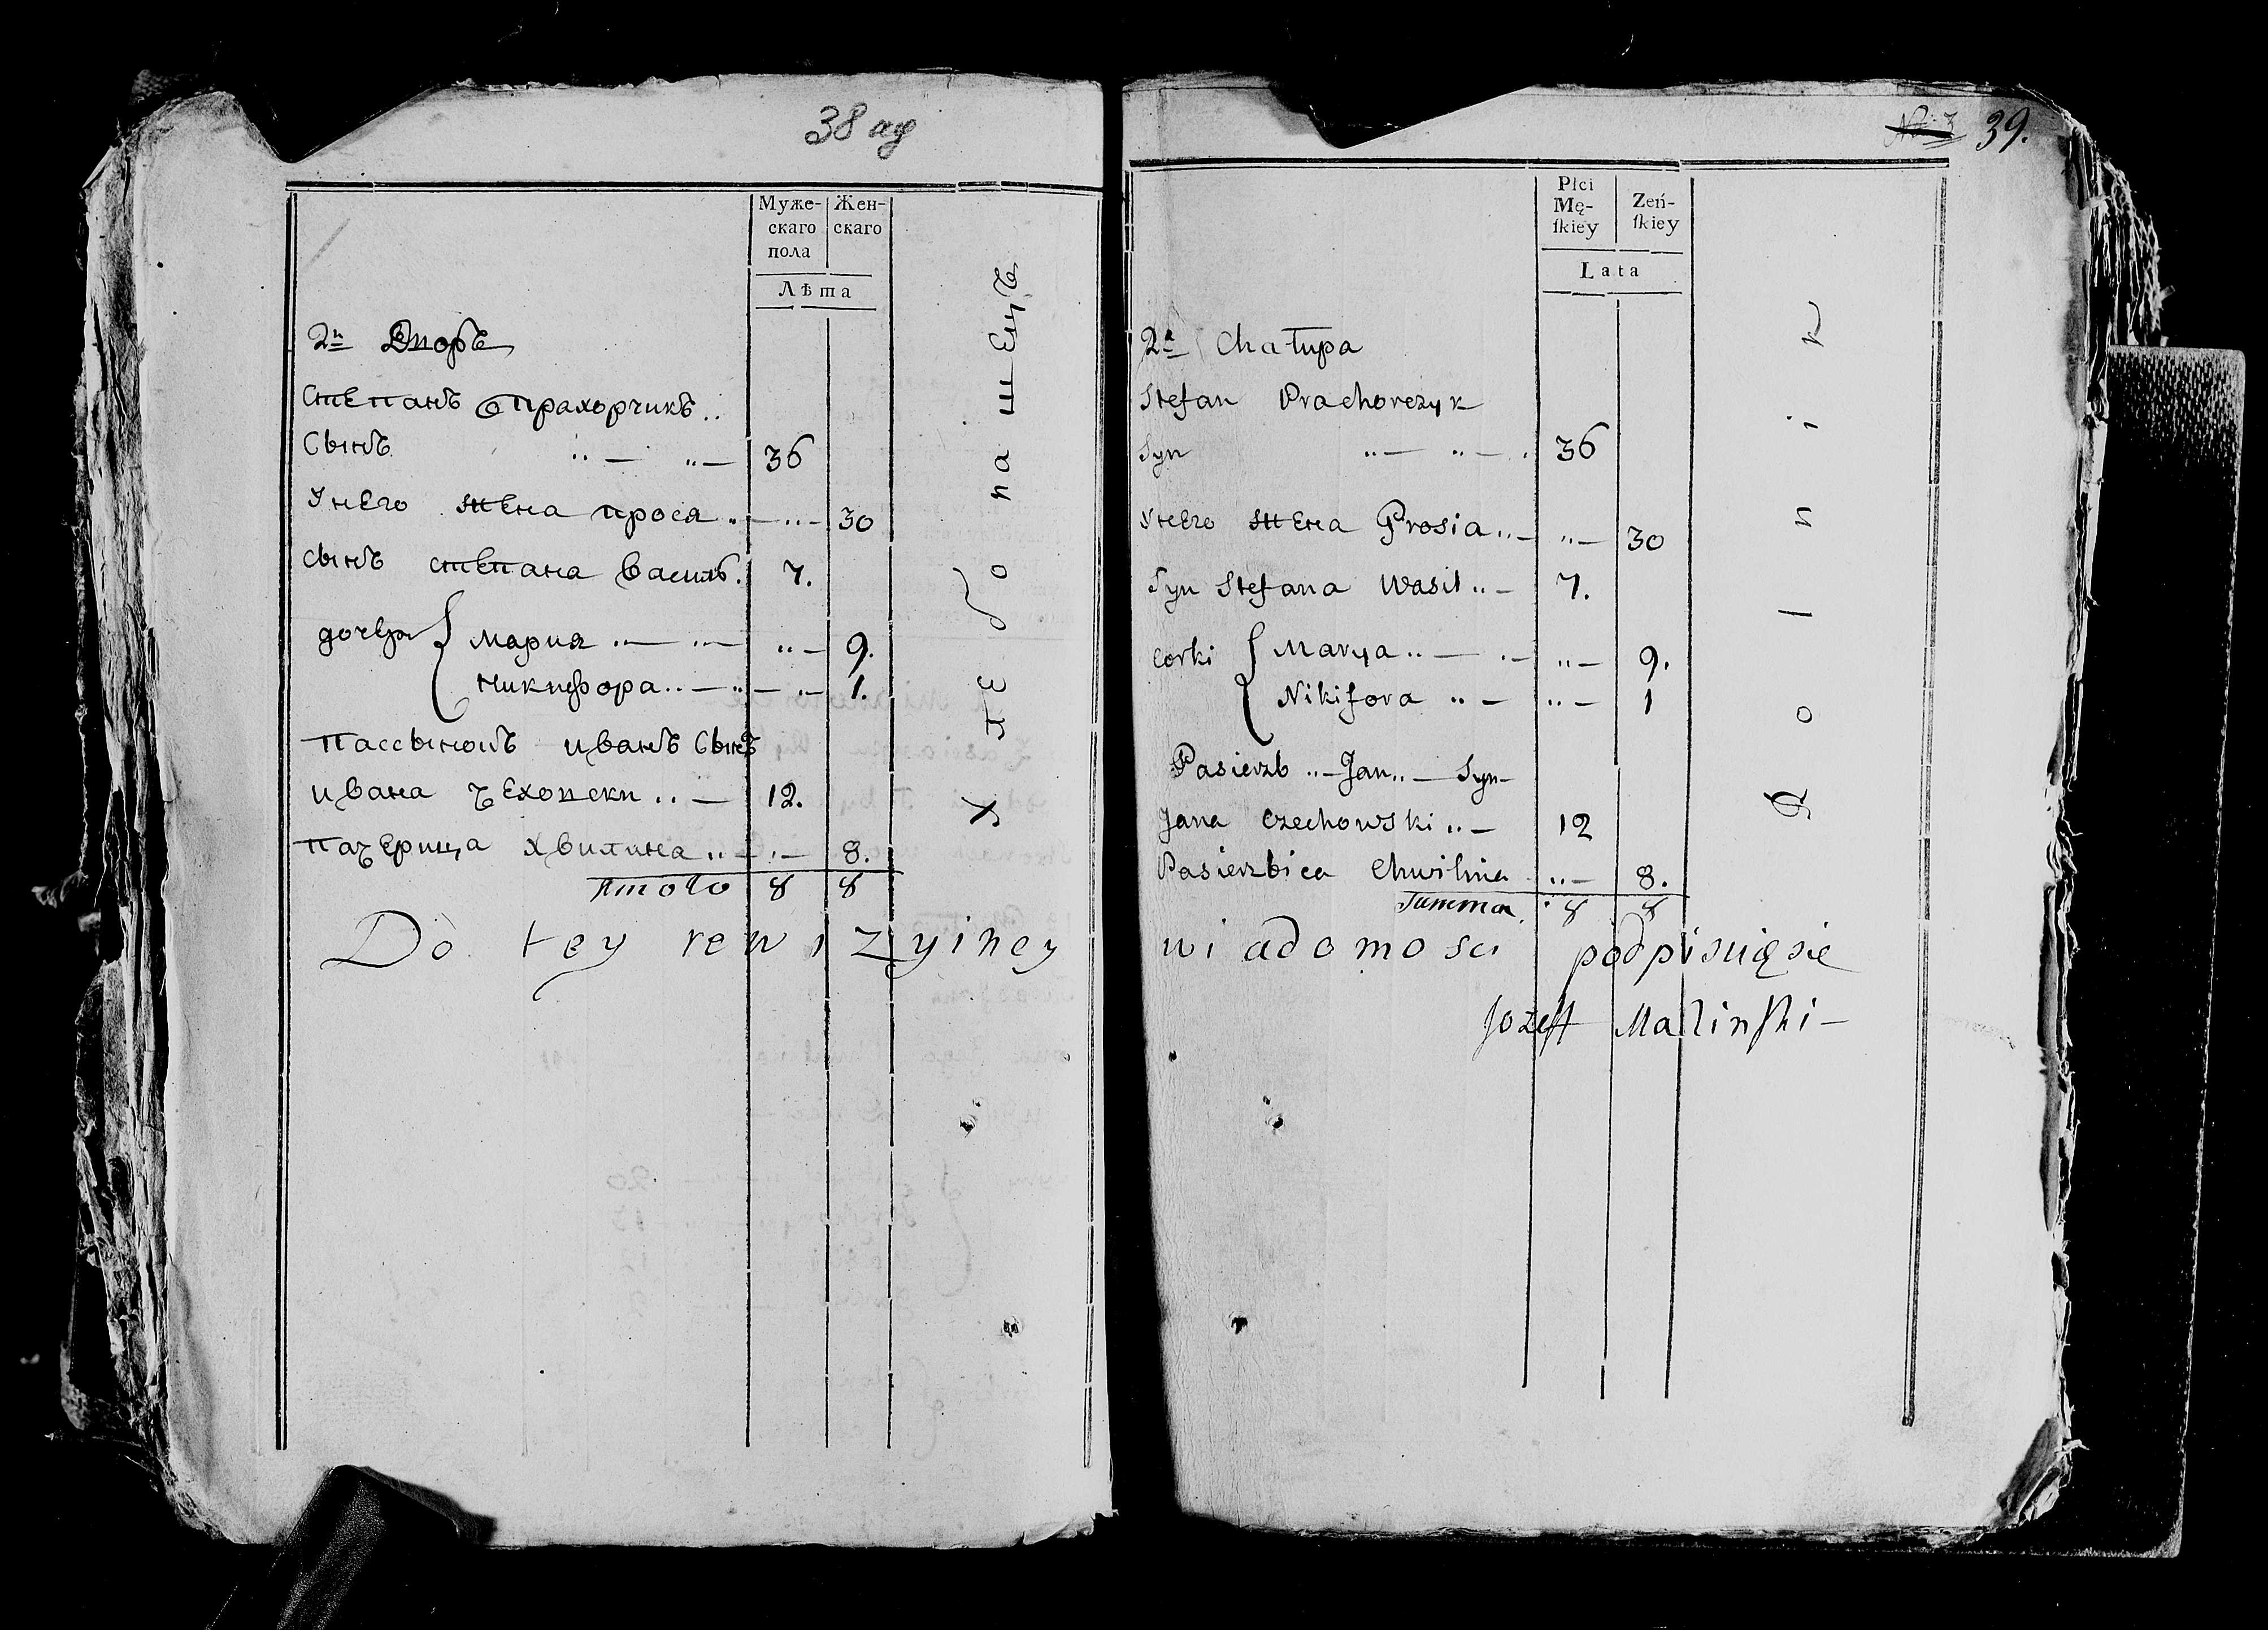 38 ад
Муже-
скаго
пола
Жен-
скаго
Лѣта
2й Дворъ
Степанъ Прахорчикъ
Сынъ 36
У нЕго жЕна прося 30
сынъ стЕпана василь. 7.
дочеръ { мария 9.
никифора 1.
пассынокъ иванъ Сынъ
ивана чЕховски 12.
пачЕрица хвилина 8.
итого 8 8
хлЕбопашЕцъ
39.
Płci
Mę-
ſkiey
Zeń-
ſkiey
Lata
2a Chałupa
Stefan Prachorczyk
Syn 36
У нЕго жЕна Prosia 30
Syn Stefana Wasil 7.
corki { Marya 9.
Nikifora 1
Pasierzb Jan Syn
Jana Czechowski 12
Pasierzbica Chwilina 8.
Summa 8 8
Rolnik
Do tey rewizyiney wiadomosci podpisuię sie
Jozeff Malinſki